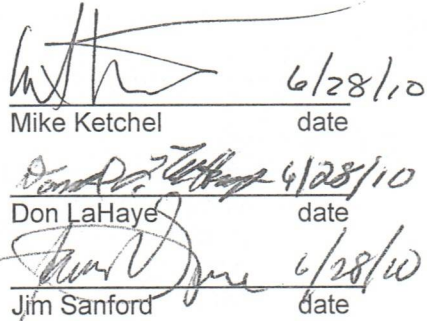 6/28/10
Mike Ketchel date
6/28/10
Don LaHaye date
6/28/10
Jim Sanford date